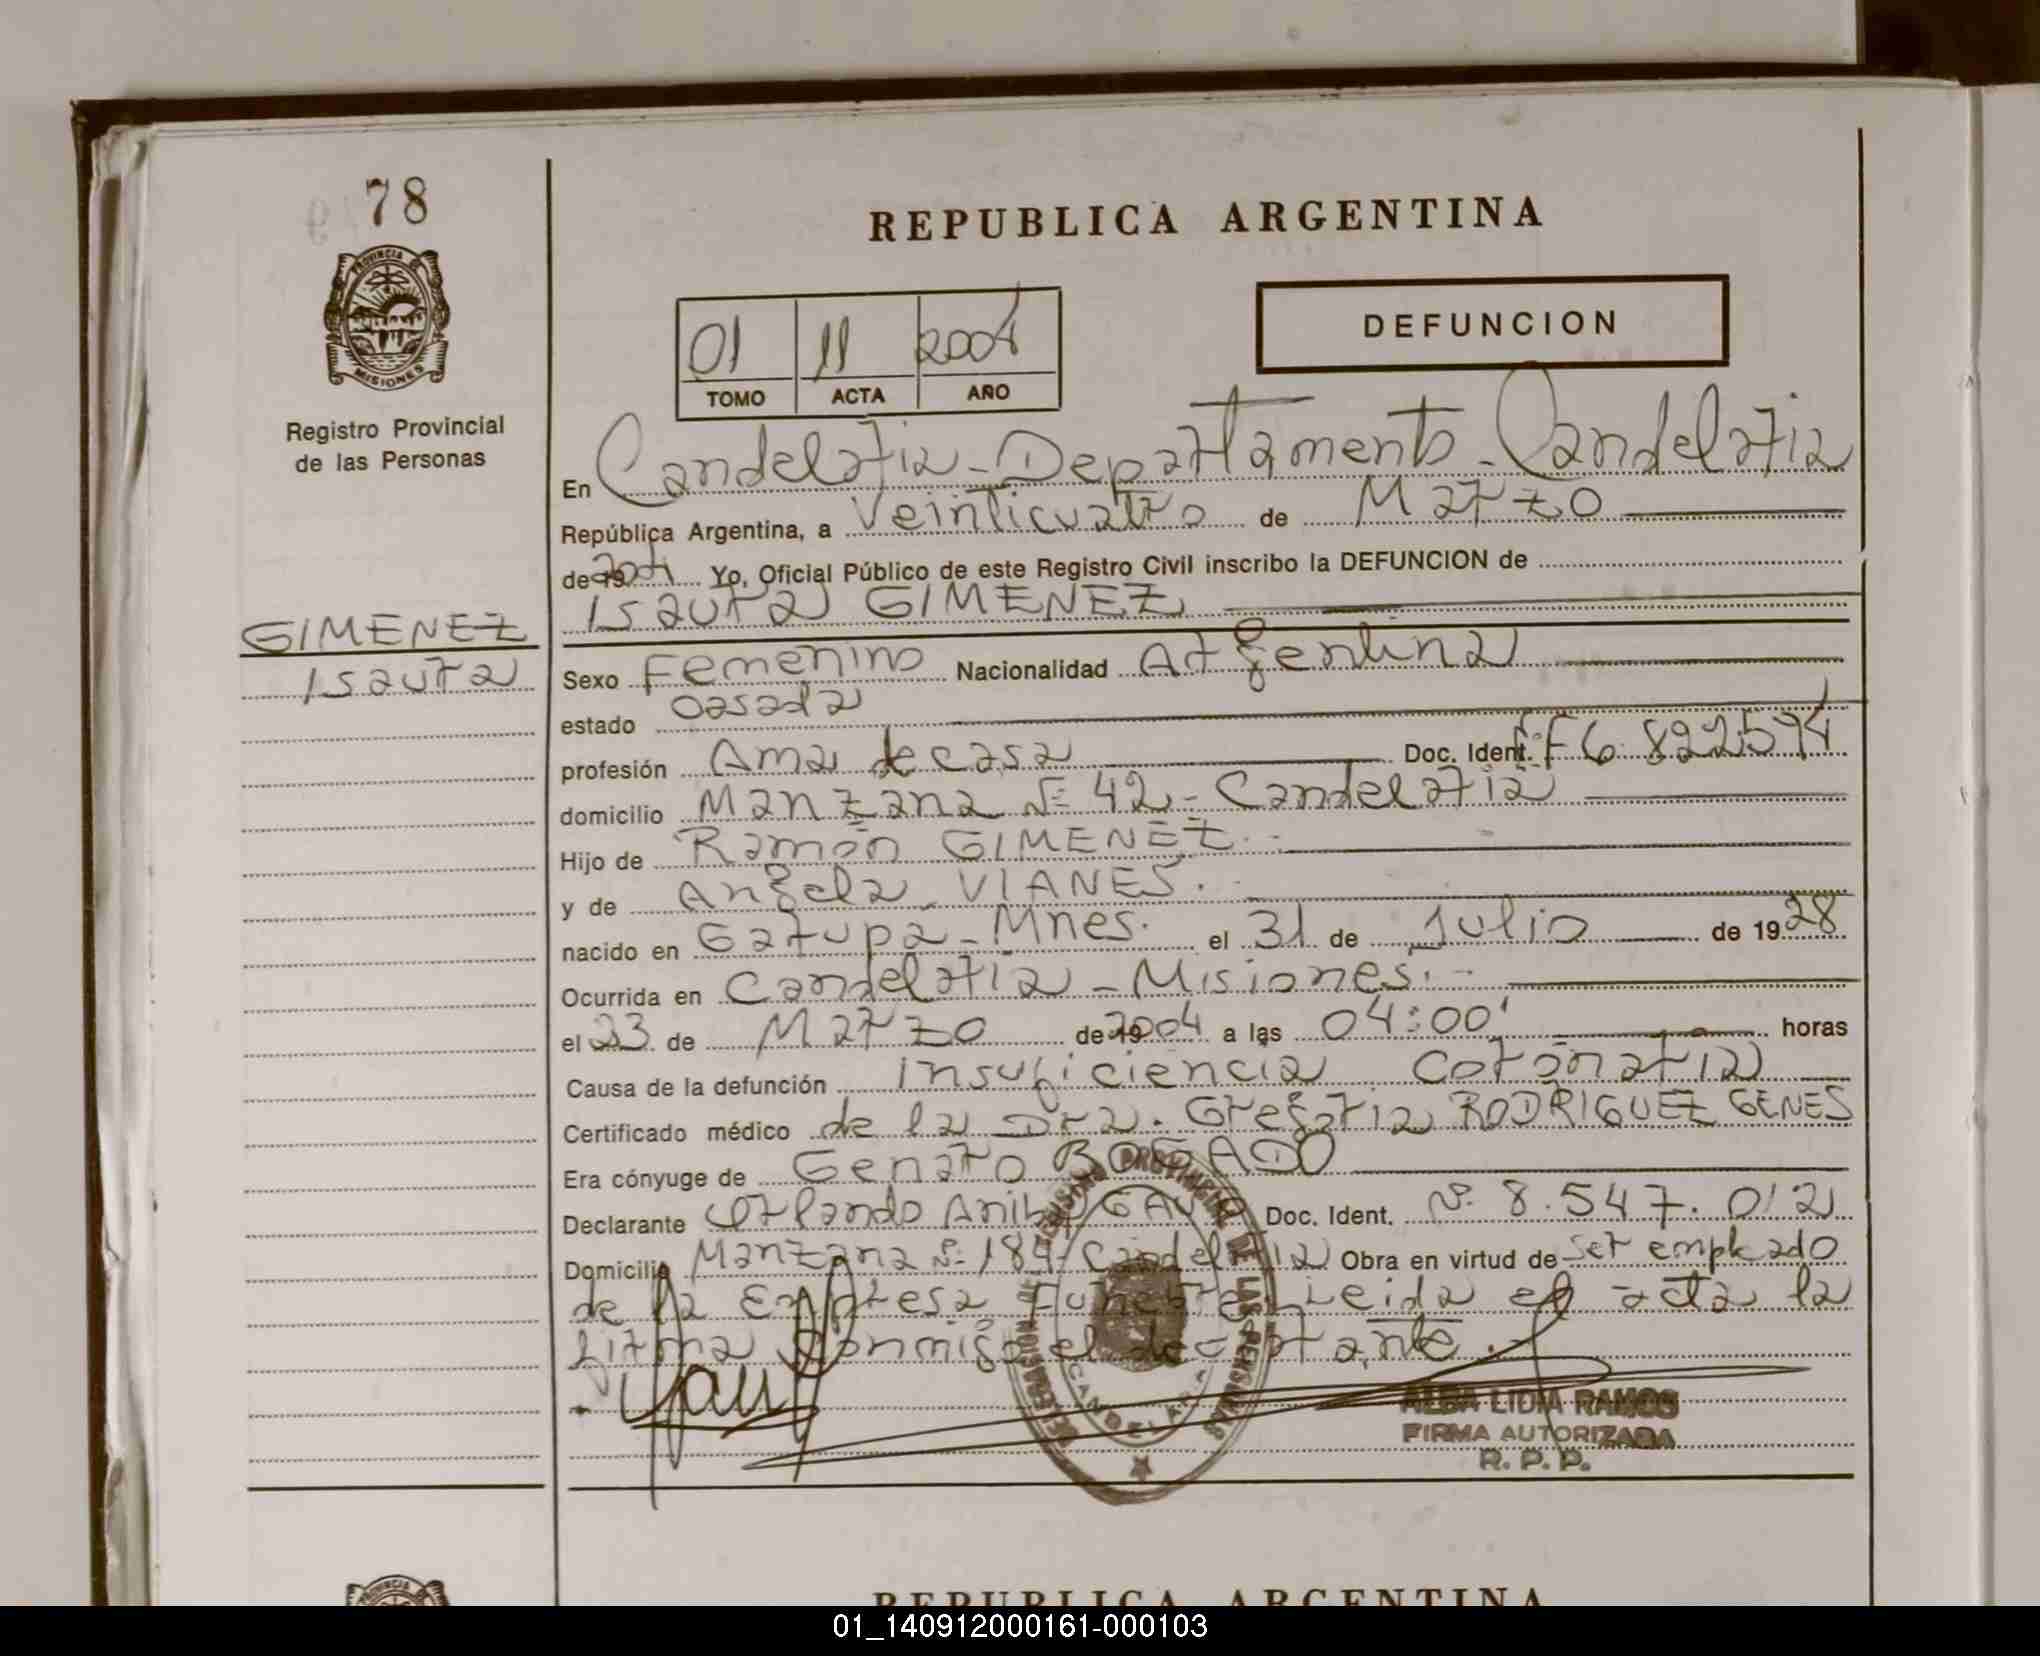 78
PROVINCIA DE
MISIONES
Registro Provincial
de las Personas
GIMENEZ
Isaura
REPUBLICA ARGENTINA
01 11 2004
TOMO ACTA AÑO
DEFUNCION
En Candelaria - Departamento - Candelaria
República Argentina, a Veinticuatro de Marzo
de 2004 Yo, Oficial Público de este Registro Civil inscribo la DEFUNCION de
Isaura GIMENEZ
Sexo Femenino Nacionalidad Argentina
estado casada
profesión Ama de casa Doc. Ident. F6.822594
domicilio Manzana Nº 42 - Candelaria
Hijo de Ramón GIMENEZ.
y de Angela VIANES.
nacido en Garupa - Mnes. el 31 de Julio de 1928
Ocurrida en Candelaria - Misiones.
el 23 de Marzo de 2004 a las 04:00' horas
Causa de la defunción Insuficiencia Coronaria
Certificado médico de la Dra. Gregoria RODRIGUEZ GENES
Era cónyuge de Genaro BOGADO
Declarante Orlando Doc. Ident. Nº 8.547.012
Domicilio Manzana Nº 184 - Candelaria Obra en virtud de ser empleado
de la Empresa Funebre. Leida el acta la
firma conmigo el declarante.
CANDELARIA
ALBA LIDIA RAMOS
FIRMA AUTORIZADA
R. P. P.
PROVINCIA
REPUBLICA ARGENTINA
01_140912000161-000103